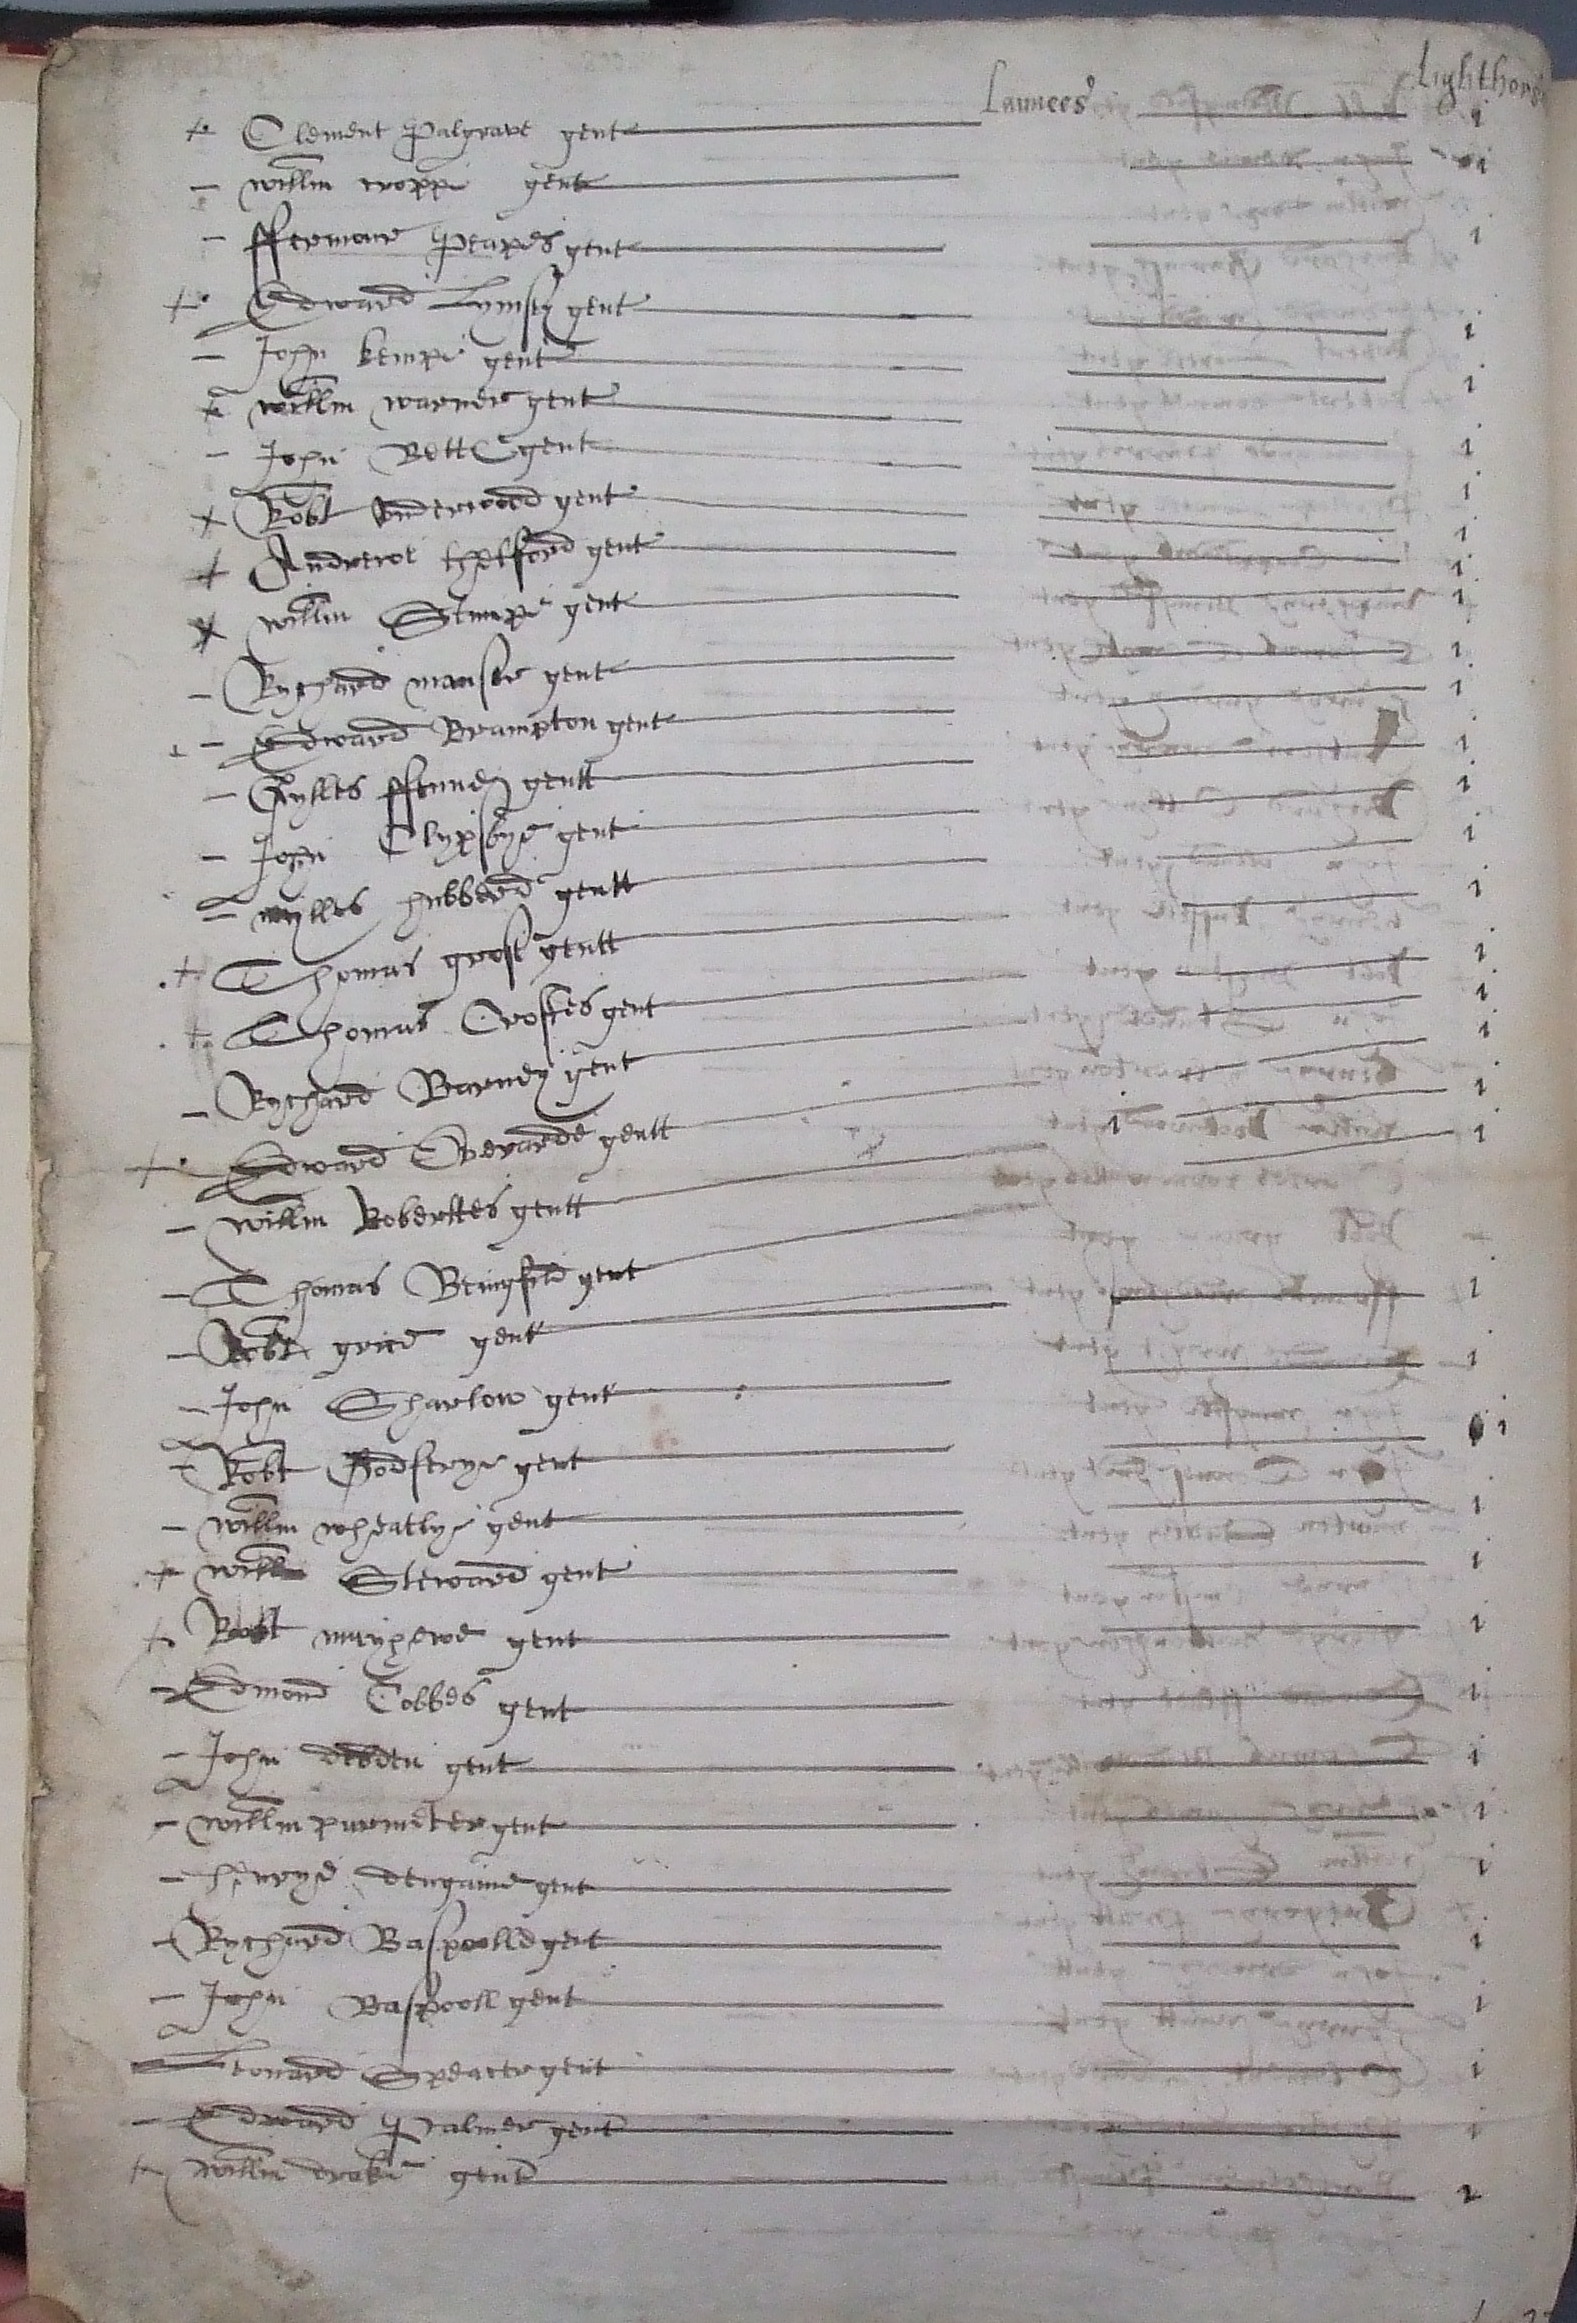 Launces Lighthors
+ Clement Palgrave gent i
- Willm cropp gent i
- ffermour Peapes gent i
+ Edward Lymsey gent i
- John kempe gent i
+ Willm warner gent i
- John Bett gent i
+ Robt Underwood gent i
+ Andrewe thetford gent i
+ Willm Stumpe gent i
- Rychard manser gent i
- Edward Brampton gent i
- Gylles ffenney gentt i
- John Clypsbye gent i
- mylles hubberd gentt i
+ Thomas gross gentt i
+ Thomas Croftes gent i
- Rychard Barney gent i
+ Edward Everarde gentt i i
- Willm Robertes gentt i
- Thomas Beingfild gent
- Robt grice gent i
- John Sharlow gent i
- Robt Godfreye gent i
- Willm wheatlye gent i
+ Willm Steward gent i
+ Robt gent i
- Edmond Cobbes gent i
- John debden gent i
- Willm purmeter gent i
- henrye dengaine gent i
- Rychard Baspoolle gent i
- John Baspooll gent i
- Leonard Spencer gent i
- Edward Palmer gent i
+ Willm drake gent i